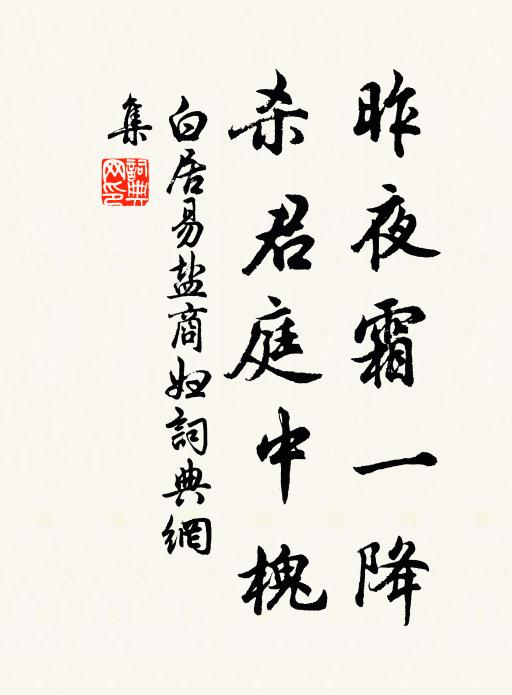 昨夜霜一降
杀君庭中槐
白居易盐商妇詞典網
集
詞典网印